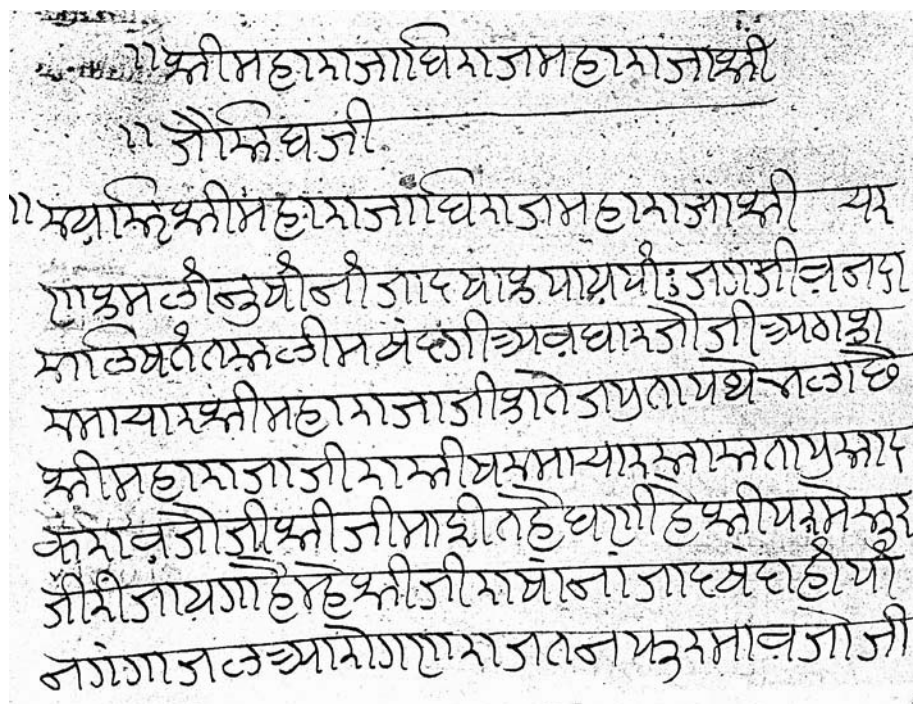 ॥ श्री महाराजाधिराज महाराजा श्री
॥ जैसिंघजी
॥ स्वस्ति श्री महाराजाधिराज महाराजा श्री चर
ण कमलांनु षांनांजाद षाक पाय पां: जगजीवनदा
स लिषतं तसलीम बंदगी अवधारजो जी अठा का
समाचार श्री महाराजाजी का तेज प्रताप थे भला छै
श्री महाराजाजी रा सीष समाचार सासता प्रसाद
करावजो जी श्री जी माईत है धणी है श्री परमेसुर
जी री जायगा है म्हे श्री जी रा षांनांजाद बंदा हां पां
न गंगाजल आरोगण रा जतन फुरमावजो जी